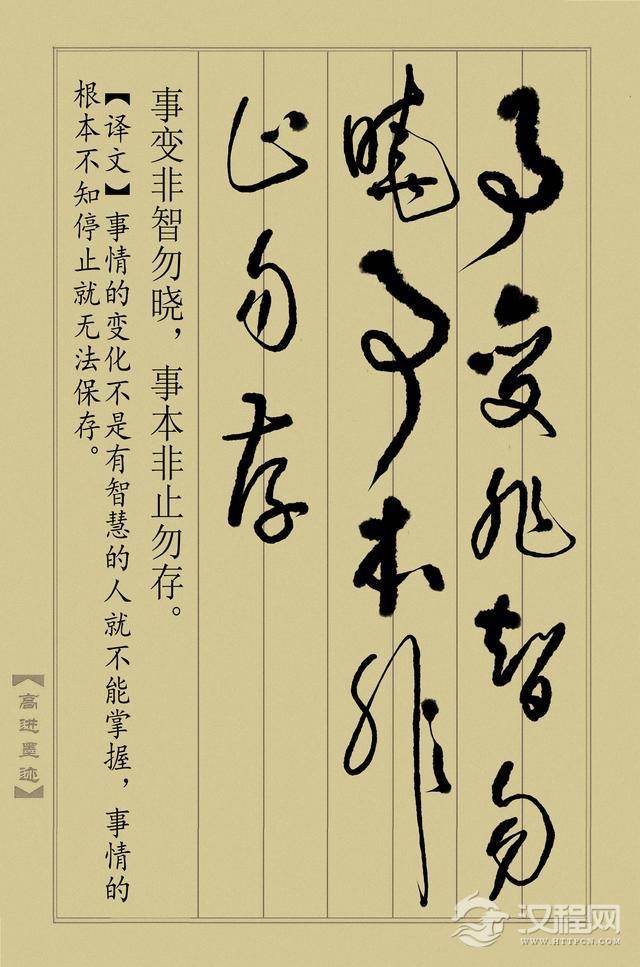 事变非智勿
晓事本非
止勿存
事变非智勿晓，事本非止勿存。
【译文】事情的变化不是有智慧的人就不能掌握，事情的
根本不知停止就无法保存。
【高进墨迹】
汉程网
WWW.HTTPCN.COM